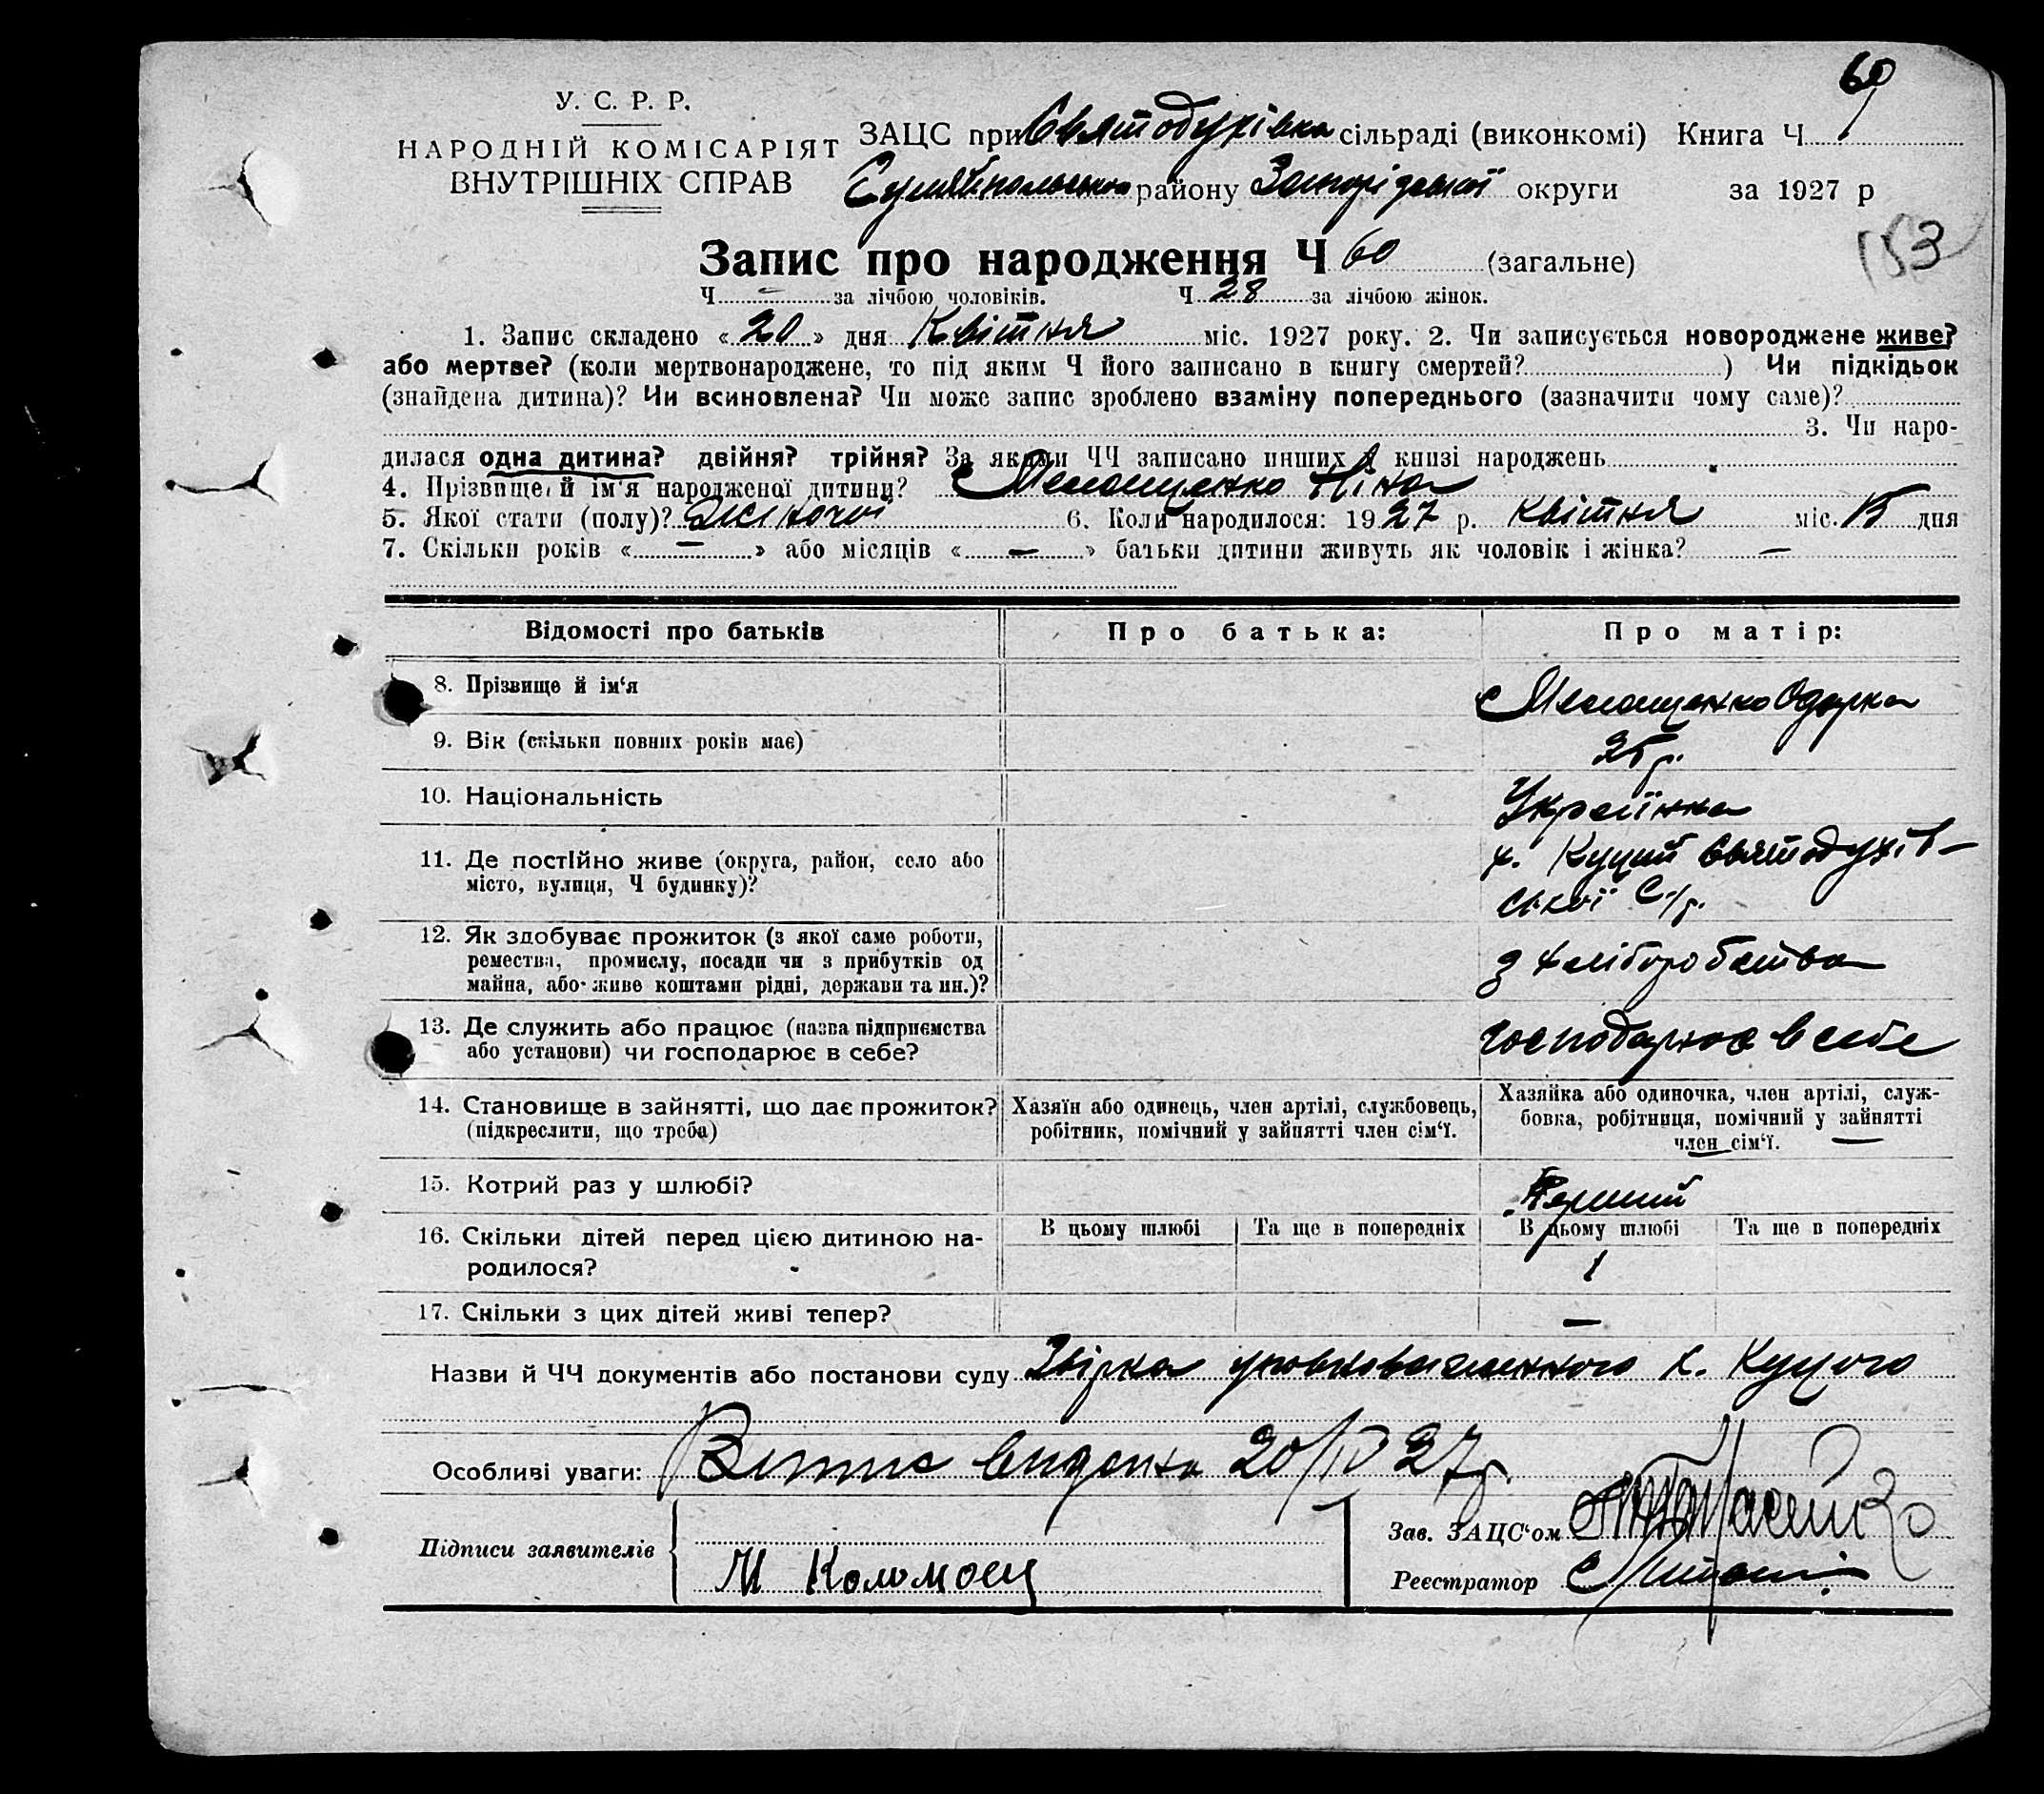 60
У. С. Р. Р.
НАРОДНІЙ КОМІСАРІЯТ
ВНУТРІШНІХ СПРАВ
ЗАЦС при Святодухівка сільраді (виконкомі) Книга Ч
району Запорізької округи за 1927 р
153
Запис про народження Ч 60 (загальне)
Ч — за лічбою чоловіків. Ч 28 за лічбою жінок.
1. Запис складено « 20 » дня Квітня міс. 1927 року. 2. Чи записується новороджене живе?
або мертве? (коли мертвонароджене, то під яким Ч його записано в книгу смертей? ) Чи підкідьок
(знайдена дитина)? Чи всиновлена? Чи може запис зроблено взаміну попереднього (зазначити чому саме)?
3. Чи наро-
дилася одна дитина? двійня? трійня? За якими ЧЧ записано инших в книзі народжень
4. Прізвище й ім'я народженої дитини? Ніна
5. Якої стати (полу)? Жіночої 6. Коли народилося: 1927 р. Квітня міс. 15 дня
7. Скільки років « — » або місяців « — » батьки дитини живуть як чоловік і жінка? —
Відомості про батьків
Про батька:
Про матір:
8. Прізвище й ім'я
Одарка
9. Вік (скільки повних років має)
25 р.
10. Національність
Українка
11. Де постійно живе (округа, район, село або
місто, вулиця, Ч будинку)?
х. Куций Святодухів-
ської С/р.
12. Як здобуває прожиток (з якої саме роботи,
ремества, промислу, посади чи з прибутків од
майна, або живе коштами рідні, держави та ин.)?
з хліборобства
13. Де служить або працює (назва підприємства
або установи) чи господарює в себе?
господарює в себе
14. Становище в зайнятті, що дає прожиток?
(підкреслити, що треба)
Хазяїн або одинець, член артілі, службовець,
робітник, помічний у зайнятті член сім'ї.
Хазяйка або одиночка, член артілі, служ-
бовка, робітниця, помічний у зайнятті
член сім'ї.
15. Котрий раз у шлюбі?
Перший
16. Скільки дітей перед цією дитиною на-
родилося?
В цьому шлюбі
Та ще в попередніх
В цьому шлюбі
Та ще в попередніх
1
17. Скільки з цих дітей живі тепер?
—
Назви й ЧЧ документів або постанови суду Звірка уповноваженного х. Куцого
Особливі уваги: Виппс видана 20/IV 27 р.
Підписи заявителів
М Коломоец
Зав. ЗАЦС'ом
Реєстратор